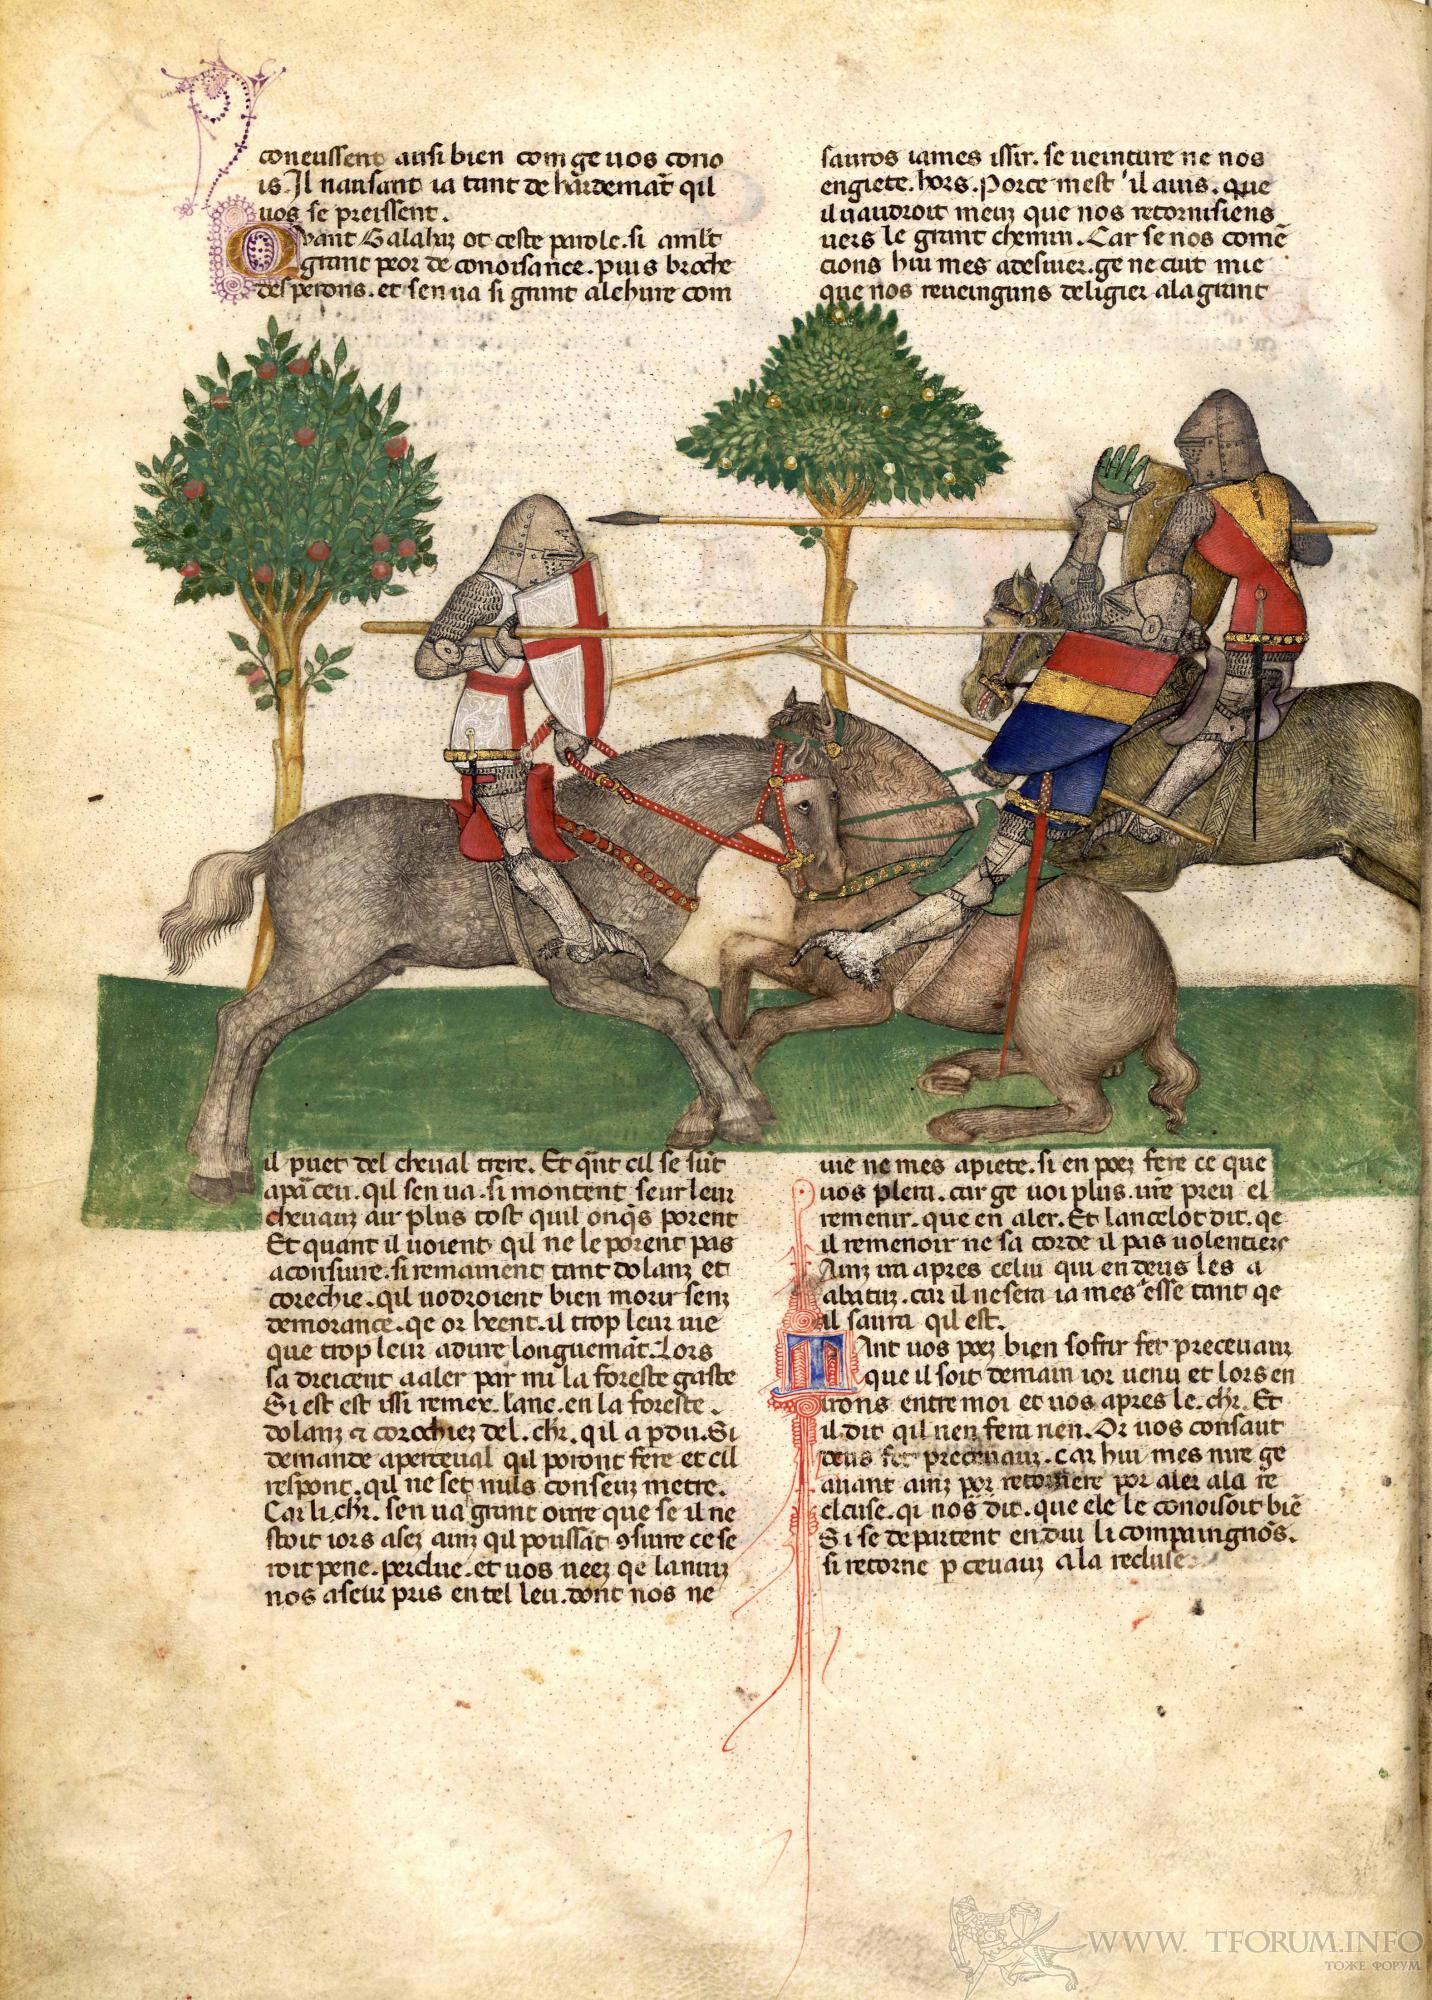 coneussent ausi bien com ge uos cono
is. Il nausant ia tant de hardemāt qil
uos se preissent.
Quant Galahuz ot ceste parole. si amlt
grant peor de conoisance. puis broche
des perons. et sen ua si grant alehure com
il puet del cheual trere. Et qnt cil se sunt
apceu. qil sen ua. si montent seur leur
cheuauz au plus tost quil onqs porent
Et quant il uoient qil ne le porent pas
aconsiure. si remainent tant dolanz et
corechie. qil uodroient bien morir senz
demorance. qe or heent. il trop leur uie
que trop leur adure longuemāt. Lors
sa drecent aaler par mi la foreste gaste
Si est est issi remex. lanc. en la foreste.
dolanz & corochiez del. chr. qil a pdu. Si
demande aperceual qil poront fere et cil
respont. qil ne set nuls conseuz metre.
Car li. chr. sen ua grant oirre que se il ne
stoit iors asez ainz qil poussāt 9siure ce se
roit pene. perdue. et uos ueez qe la nuiz
nos aseur pris en tel leu. dont nos ne
sauros iames issir. se ueinture ne nos
engiete. hors. Por ce mest il auis. que
il uaudroit meuz que nos retornisiens
uers le grant chemin. Car se nos comē
cions hui mes adesuier. ge ne cuit mie
que nos reueinguns deligier ala grant
uie ne mes apiete. si en poez fere ce que
uos plera. car ge uoi plus. nre preu el
remenir. que en aler. Et lancelot dit. qe
il remenoir ne sa corde il pas uolentiers
Ainz ira apres celui qui en deus les a
abatuz. car il ne sera ia mes esse tant qe
il saura qil est.
Tant uos poez bien sofrir fet perceuauz
que il soit demain ior uenu et lors en
irons entre moi et uos apres le. chr. Et
il dit qil nen fera rien. Or uos consaut
deus fet perceuauz. car hui mes nire ge
auant ainz retornere por aler ala re
cluse. qi nos dit. que ele le conoisoit biē
Si se departent en dui li compaingnōs.
si retorne p ceuauz a la recluse
WWW. TFORUM.INFO
ТОЖЕ ФОРУМ